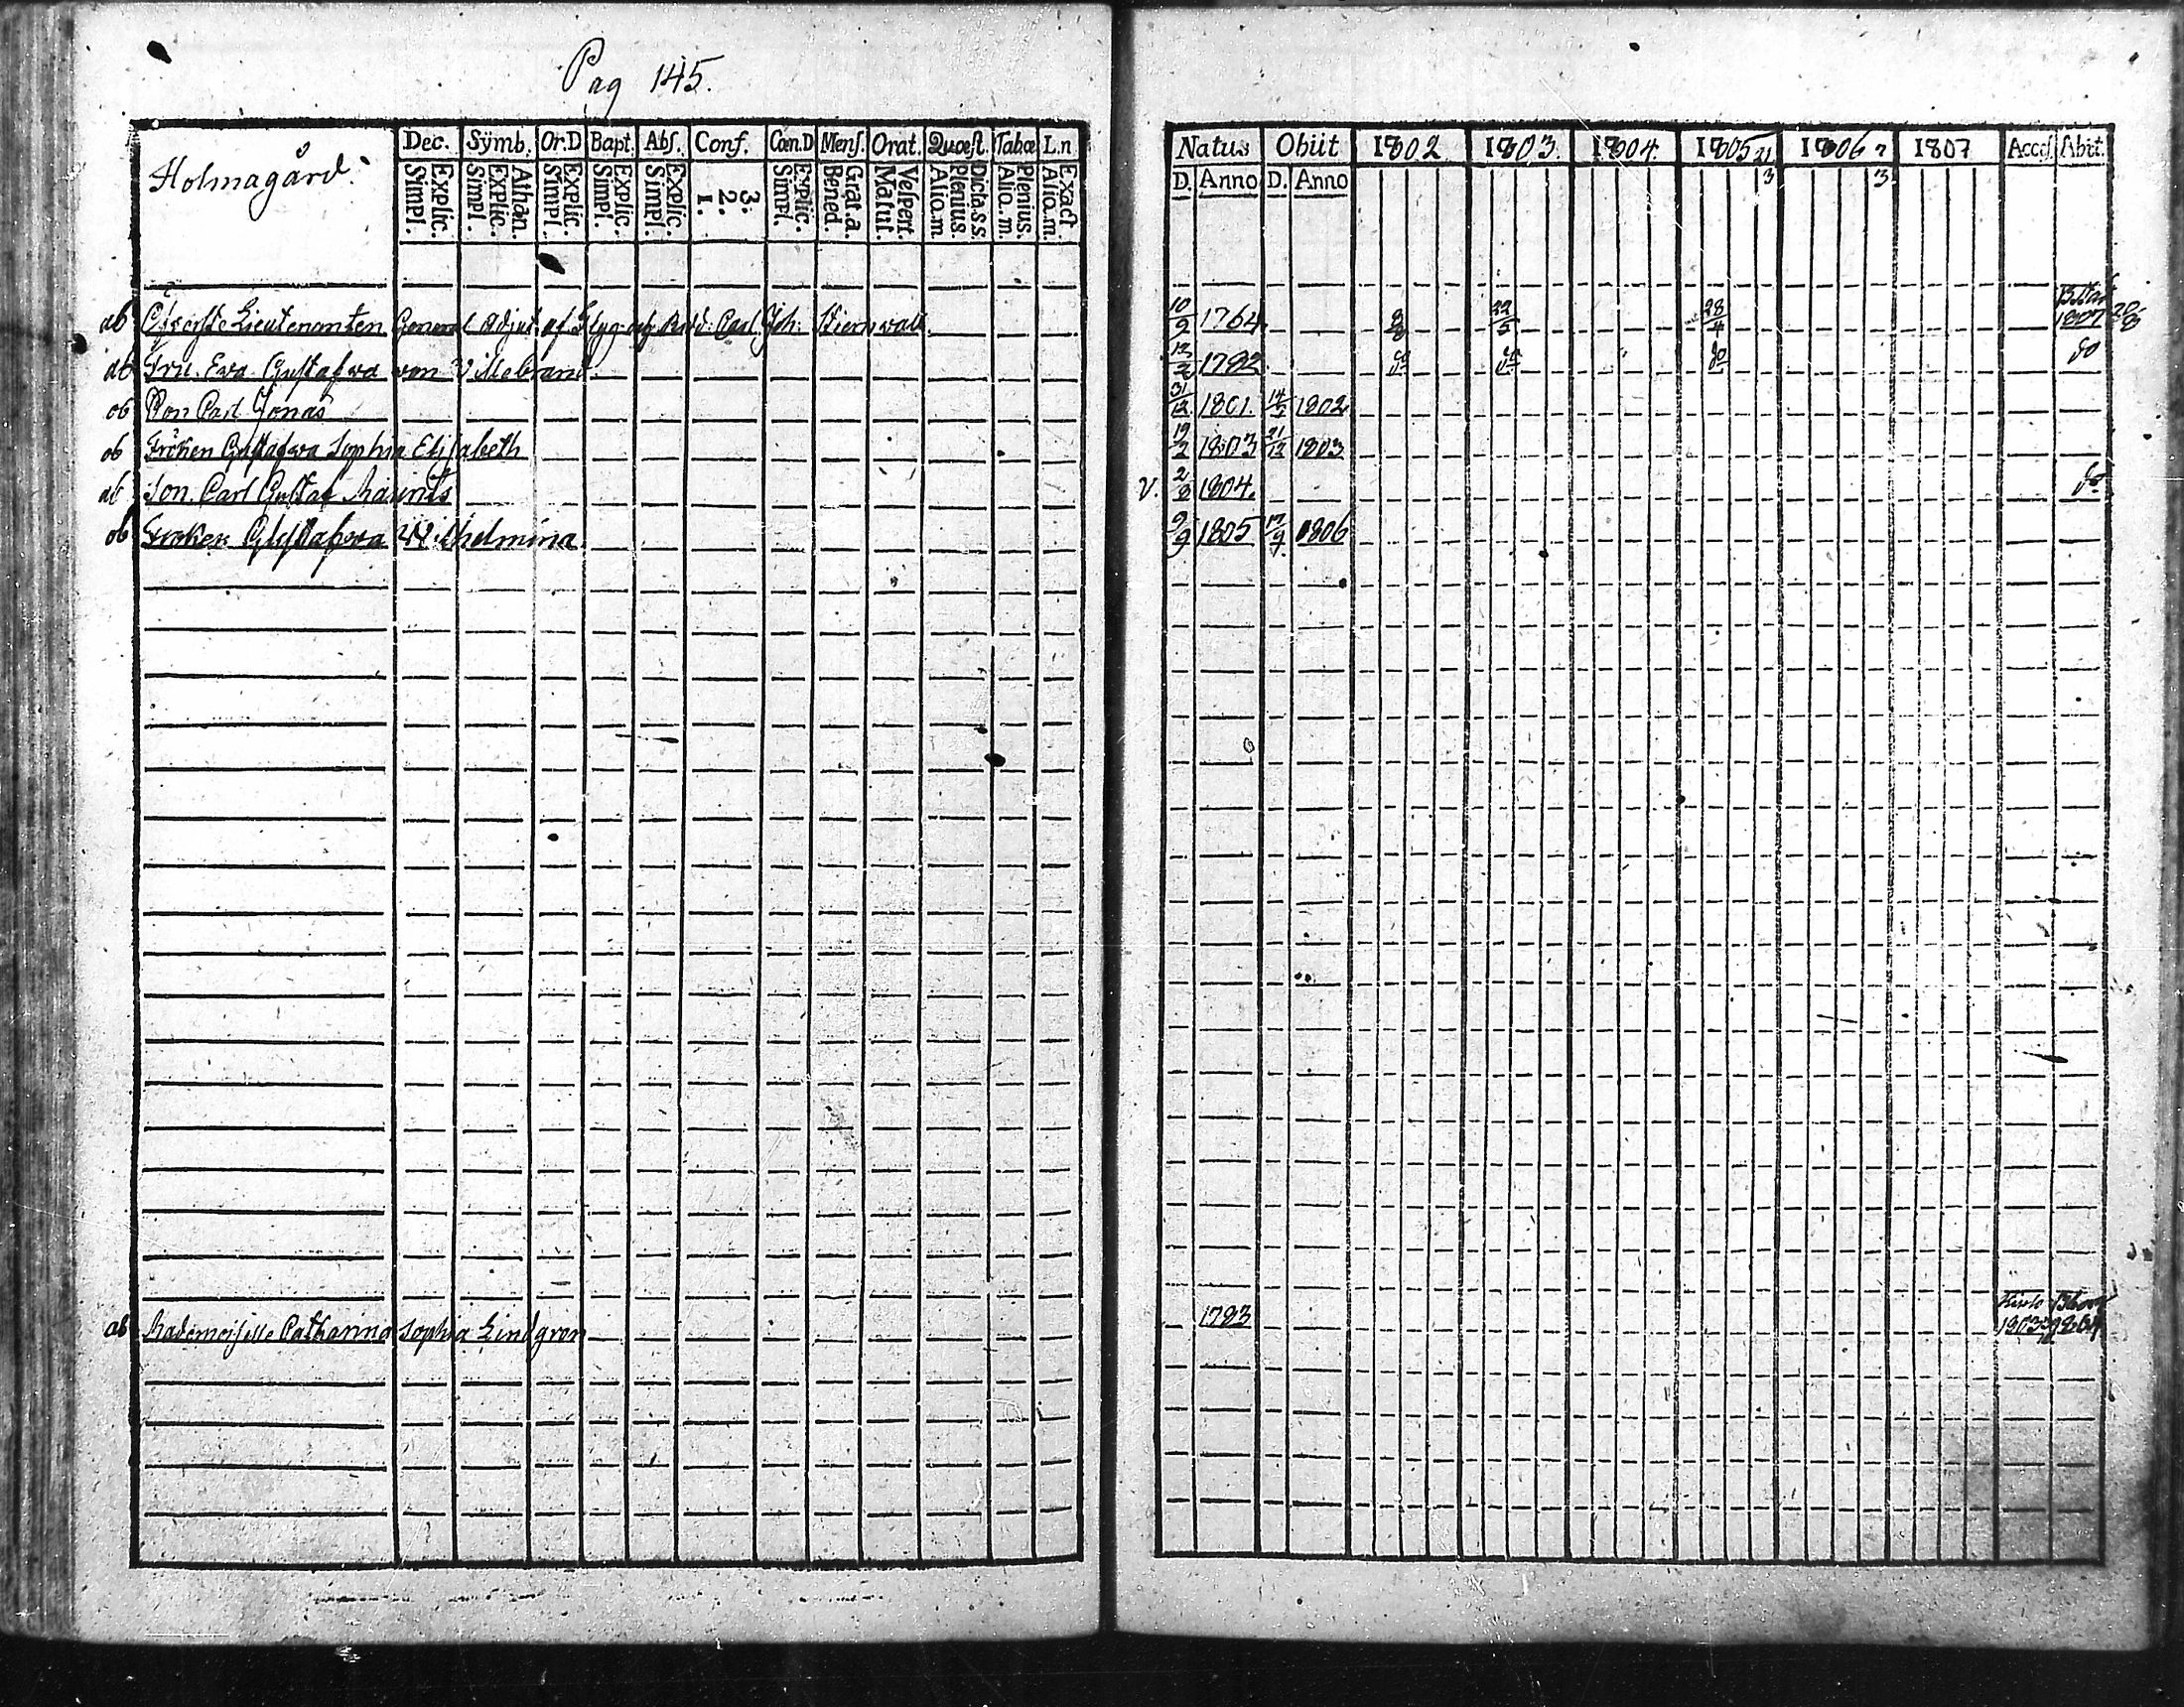 Pag 145.
Holmagård:
Dec. Sÿmb. Or.D Bapt. Abſ. Conf. Cœn.D Menſ. Orat. Quæſt. Tabæ L.n
Explic. Simpl. Athan. Explic. Simpl. Explic. Simpl. Explic. Simpl. Explic. Simpl. 3. 2. 1. Explic. Simpl. Grat.a. Bened. Veſpert. Matut. Dicta.s.s. Plenius. Alio.m. Plenius. Alio.m. Exact. Alio.m.
ab Öfverste Lieutenanten General Adjut. af Carl Joh:
ab Fru. Eva Gustafwa von Villebrand
ob Son Carl Jonas
ob Fröken Gustafwa Sophia Elisabeth
ab Son. Carl Gustaf Mauritz
ob Fröken Gustafwa Wilhelmina
ab Mademoiselle Catharina Sophia Lindgren
Natus Obiit 1802 1803. 1804. 1805 21/3 1806 7/3 1807 Acceſ. Abiit.
D. Anno D. Anno
10/9 1764. 8/8 22/5 28/4 1807
12/2 1782 do do do do
31/12 1801. 14/2 1802
19/2 1803 21/12 1803
V. 2/8 1804. do
9/9 1805 17/9 1806
1783 1803